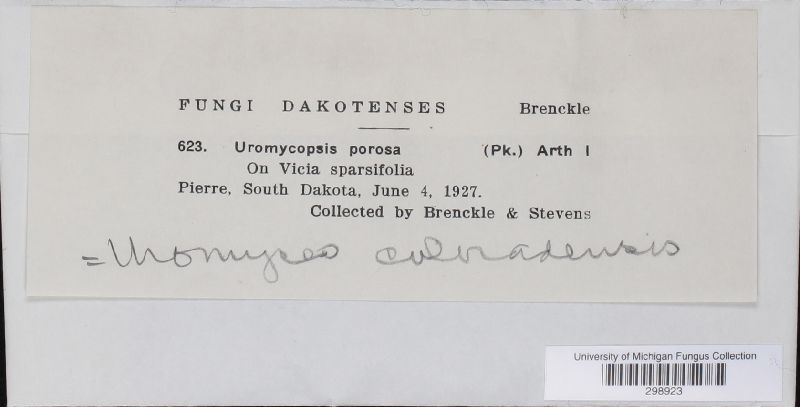 FUNGI DAKOTENSES Brenckle
623. Uromycopsis porosa (Pk.) Arth I
On Vicia sparsifolia
Pierre, South Dakota, June 4, 1927.
Collected by Brenckle & Stevens
= Uromyces coloradensis
University of Michigan Fungus Collection
298923